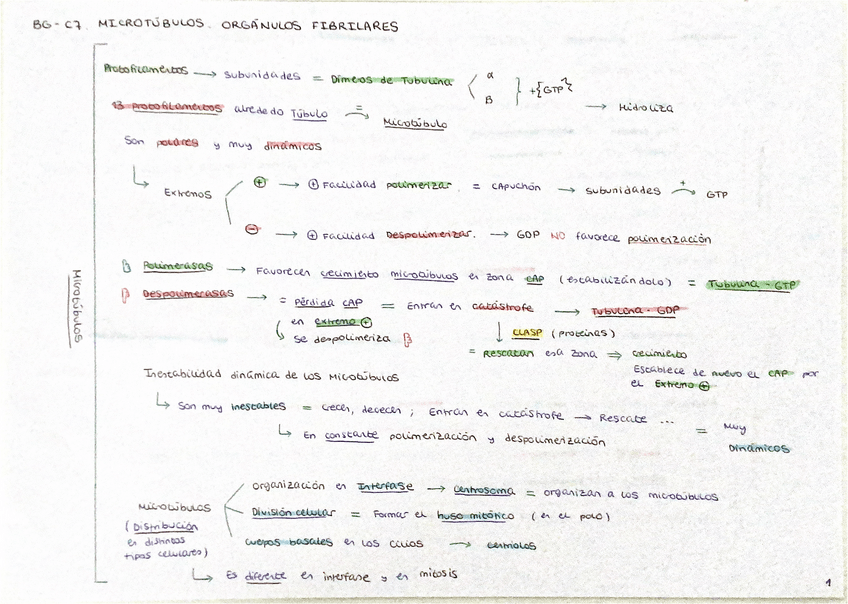 BG - C7. MICROTÚBULOS. ORGÁNULOS FIBRILARES
Protofilamentos → subunidades = Dímeros de Tubulina α β +{GTP} → Hidroliza
13 protofilamentos alrededo Túbulo = Microtúbulo
Son polares y muy dinámicos
Extremos
⊕ → ⊕ Facilidad polimerizar. = CAPUCHÓN → subunidades + GTP
⊖ → ⊕ Facilidad Despolimerizar. → GDP NO favorece polimerización
Polimerasas → Favorecen crecimiento microtúbulos en zona CAP (estabilizándolo) = Tubulina - GTP
Despolimerasas → = Pérdida CAP = Entran en catástrofe → Tubulina - GDP
en extremo ⊕
↳ se despolimeriza
↓ CLASP (proteínas)
= Rescatan esa zona ⇒ crecimiento
Establece de nuevo el CAP por
el Extremo ⊕
Inestabilidad dinámica de los Microtúbulos
↳ Son muy inestables = crecer, decrecer ; Entran en catástrofe → Rescate ... = Muy Dinámicos
↳ En constante polimerización y despolimerización
Microtúbulos
(Distribución
en distintos
tipos celulares)
organización en Interfase → centrosoma = organizan a los microtúbulos
División celular = Formar el huso mitótico (en el polo)
cuerpos basales en los cilios → centriolos
↳ Es diferente en interfase y en mitosis
Microtúbulos
1